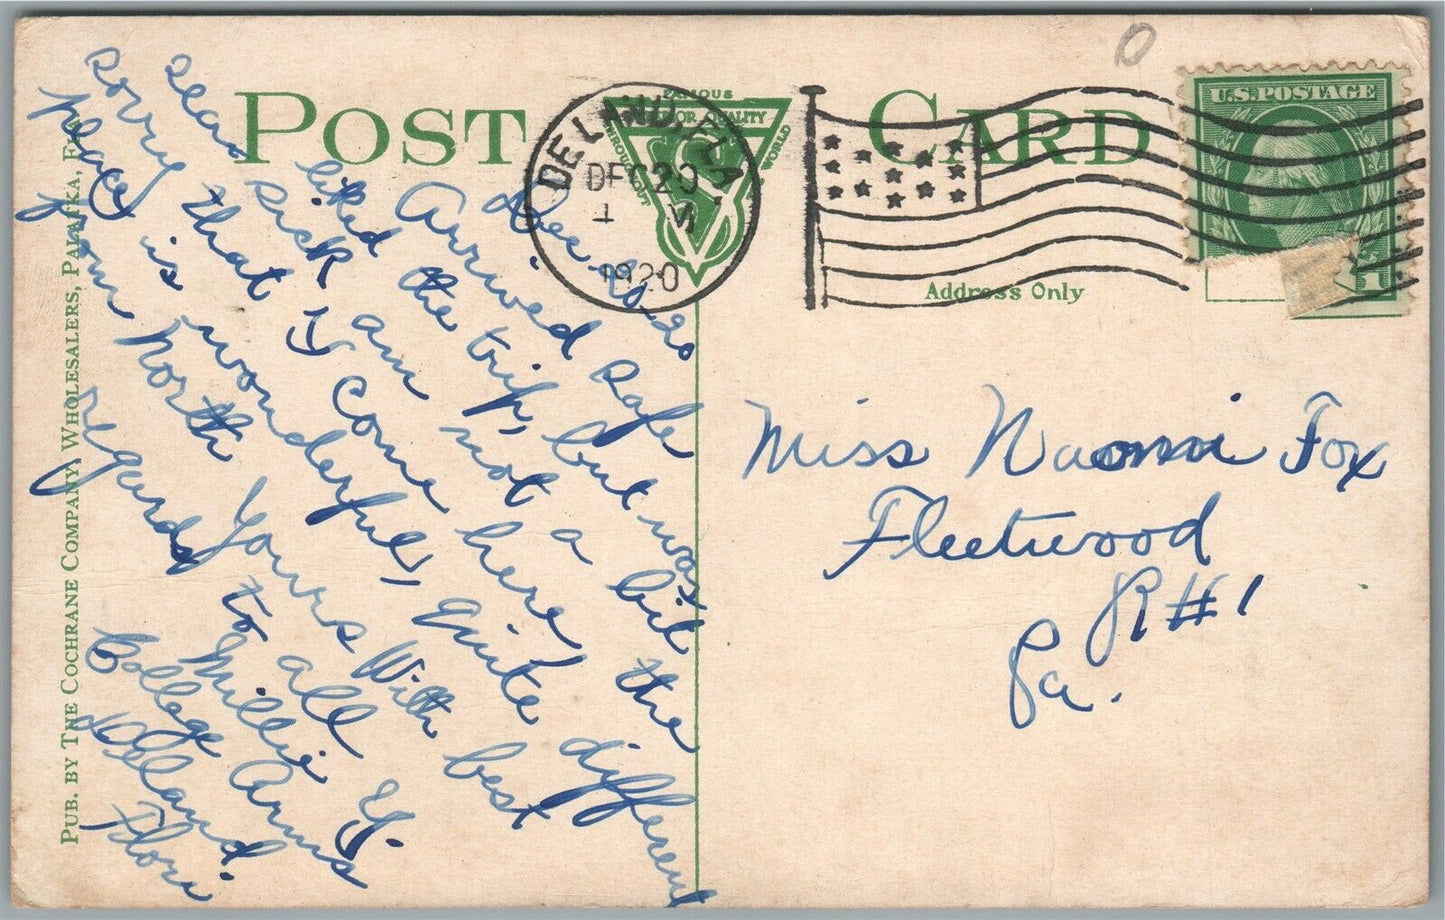 POST CARD
FAMOUS
FOR QUALITY
THROUGHOUT
WORLD
DELAND, FLA.
DEC 20
1920
U.S. POSTAGE
1
Address Only
PUB. BY THE COCHRANE COMPANY, WHOLESALERS, PALATKA, FLA.
Dec 20 1920
Dear
Arrived safe
liked the trip, but was
sick am not a bit
sorry that I come here, the
place is wonderful, quite different
from North Yours With best
regards to all
Millie Y.
College Arms
Deland.
Flori
Miss Naomi Fox
Fleetwood
R#1
Pa.